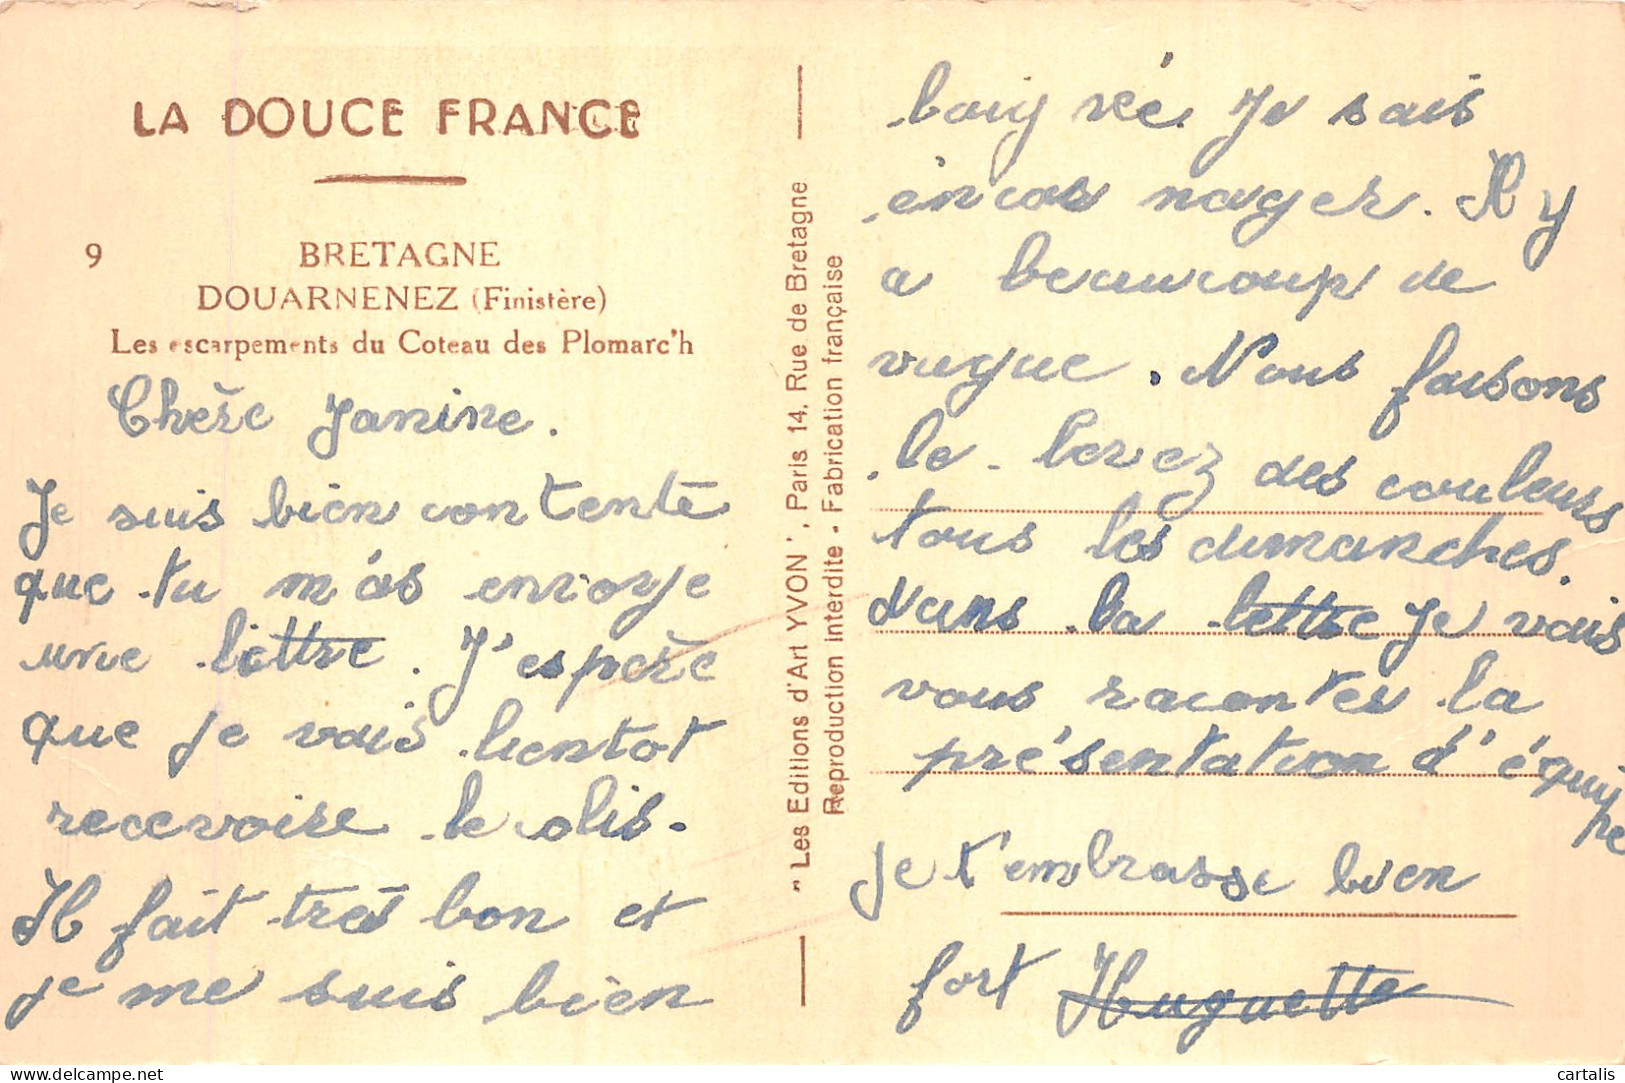 LA DOUCE FRANCE
9 BRETAGNE
DOUARNENEZ (Finistère)
Les escarpements du Coteau des Plomarc'h
Chère Janine.
Je suis bien contente
que tu m'as envoye
une lettre. J'espère
que je vais bientot
recevoire le colis.
Il fait très bon et
je me suis bien
"Les Editions d'Art YVON", Paris 14, Rue de Bretagne
Reproduction Interdite - Fabrication française
baignée. Je sais
encor nager. Il y
a beaucoup de
vague. Nous faisons
le levez des couleurs
tous les dimanches.
dans la lettre je vais
vous raconter la
présentation d'équipe
je t'embrasse bien
fort Huguette
cartalis